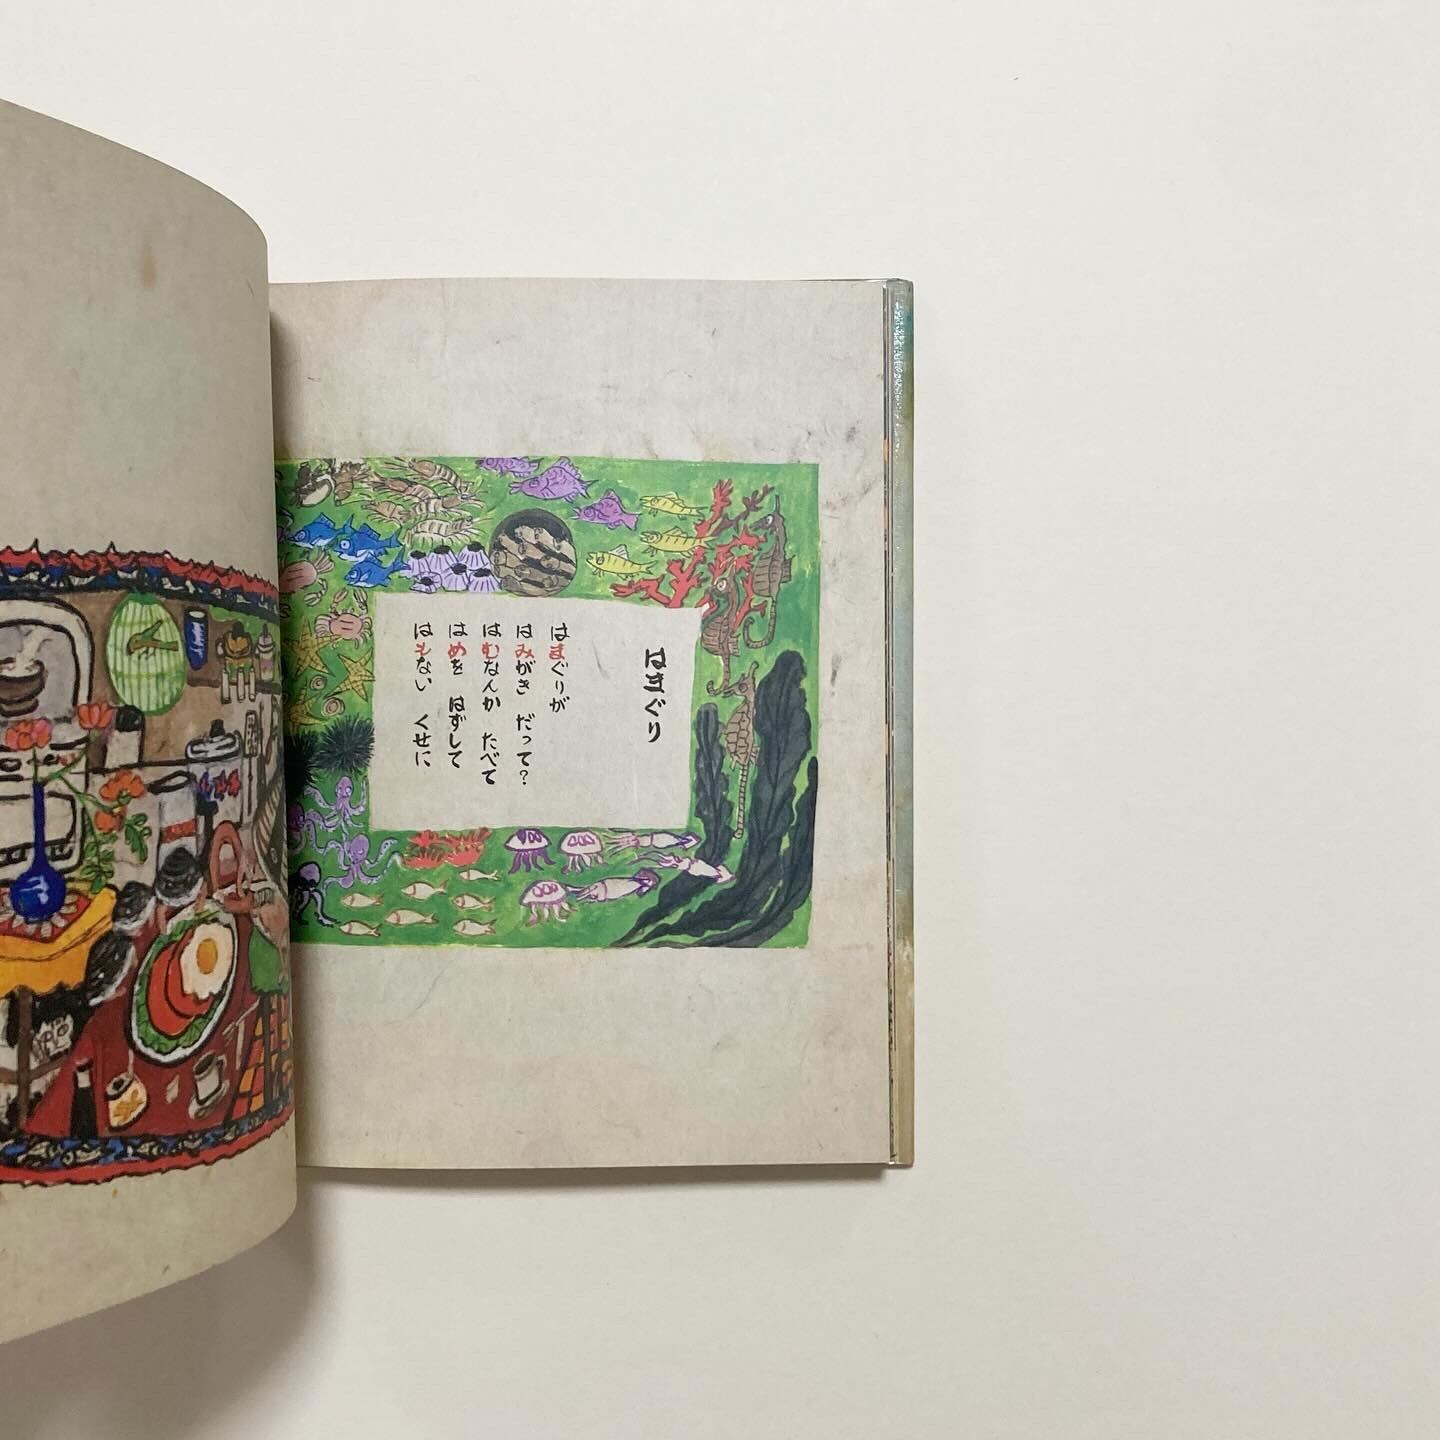 はまぐり
はまぐりが
はみがき だって?
はむなんか たべて
はめを はずして
はもない くせに